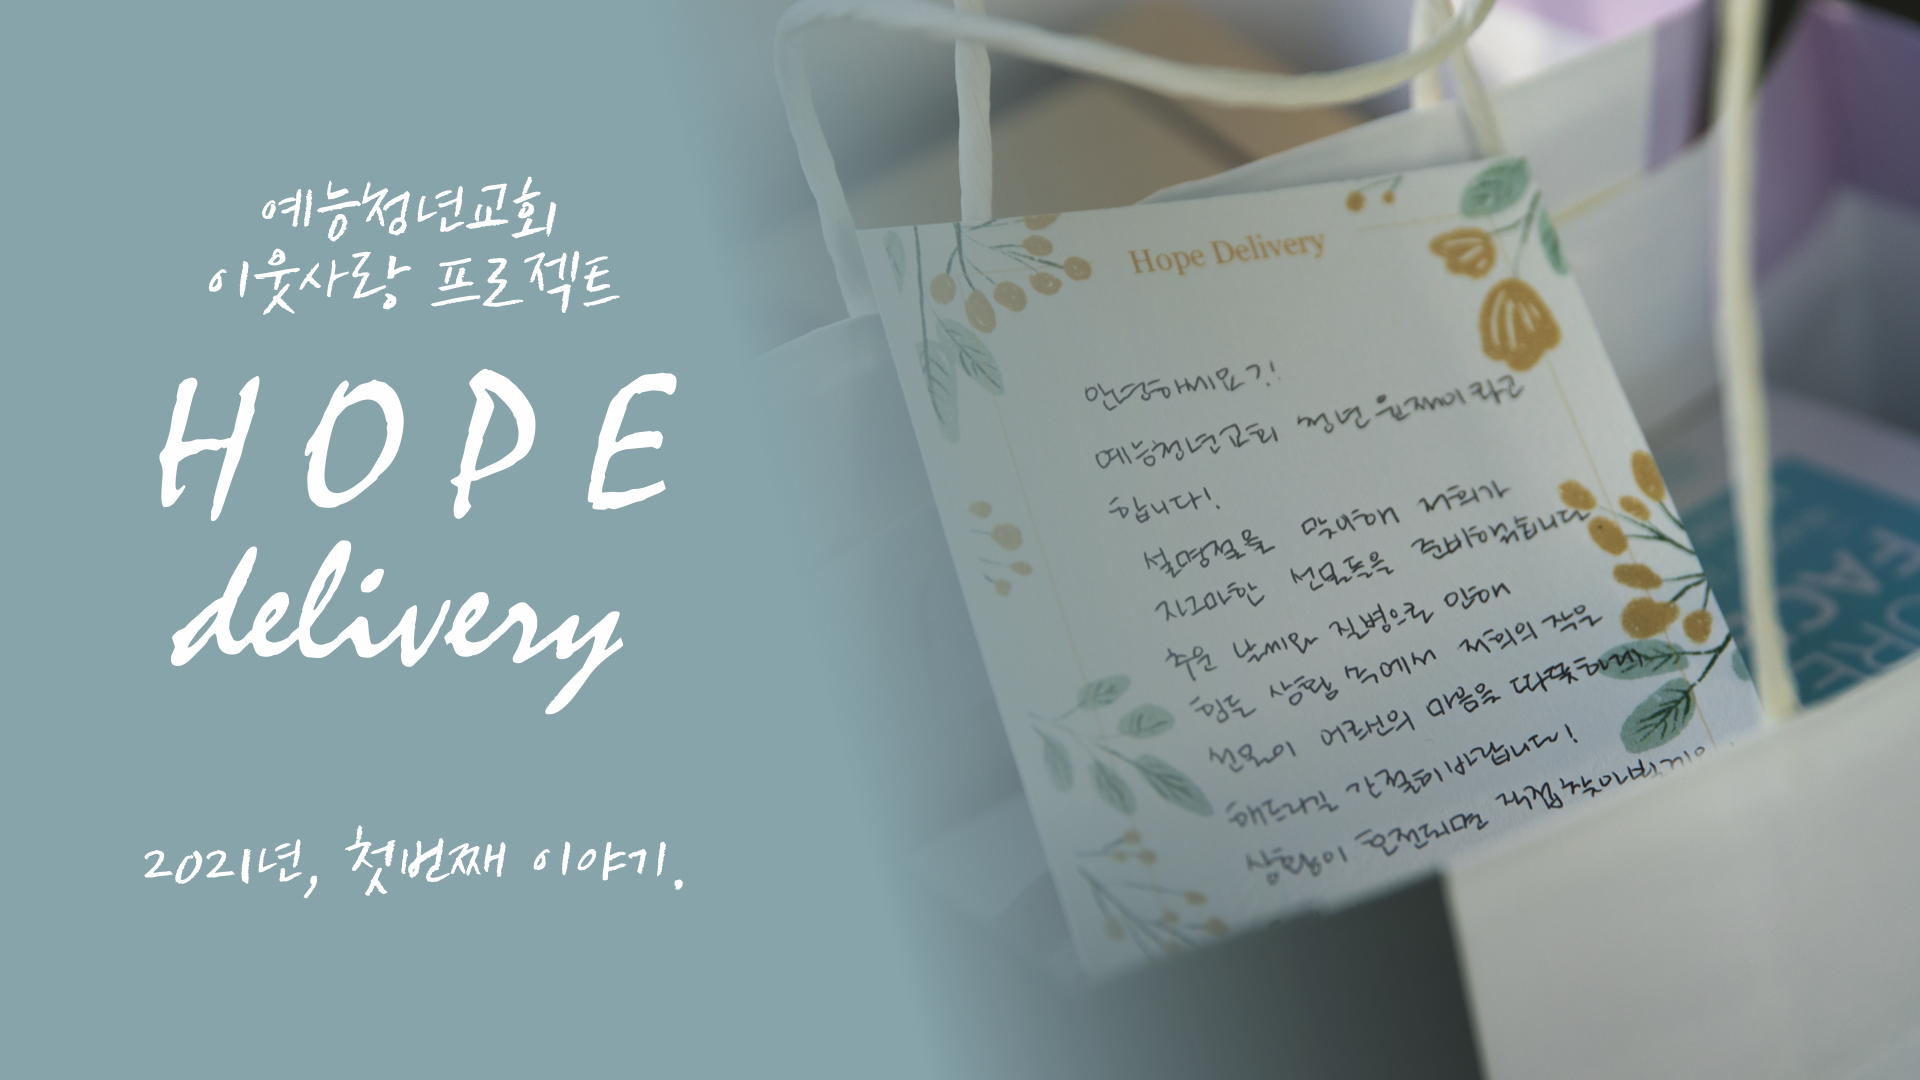 예능청년교회
이웃사랑 프로젝트
HOPE
delivery
2021년, 첫번째 이야기.
Hope Delivery
안녕하세요?!
예능청년교회 청년 윤재이라고
합니다!
설명절을 맞이해 저희가
자그마한 선물들을 준비하였습니다
추운 날씨와 질병으로 인해
힘든 상황 속에서 저희의 작은
선물이 어르신의 마음을 따뜻하게
해드리길 간절히바랍니다!
상황이 호전되면 직접찾아